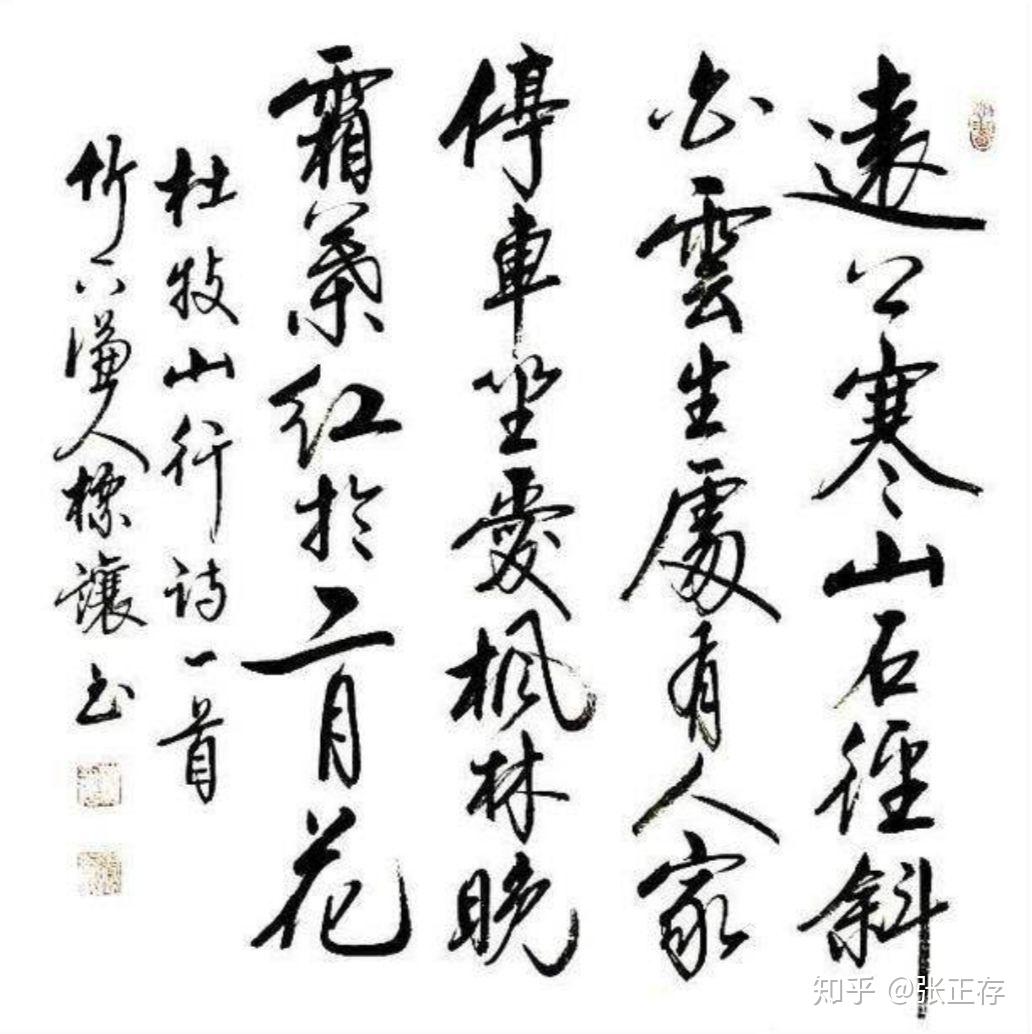 遠上寒山石徑斜
白雲生處有人家
停車坐愛楓林晚
霜葉紅於二月花
杜牧山行詩一首
竹下漁人標讓書
知乎 @张正存